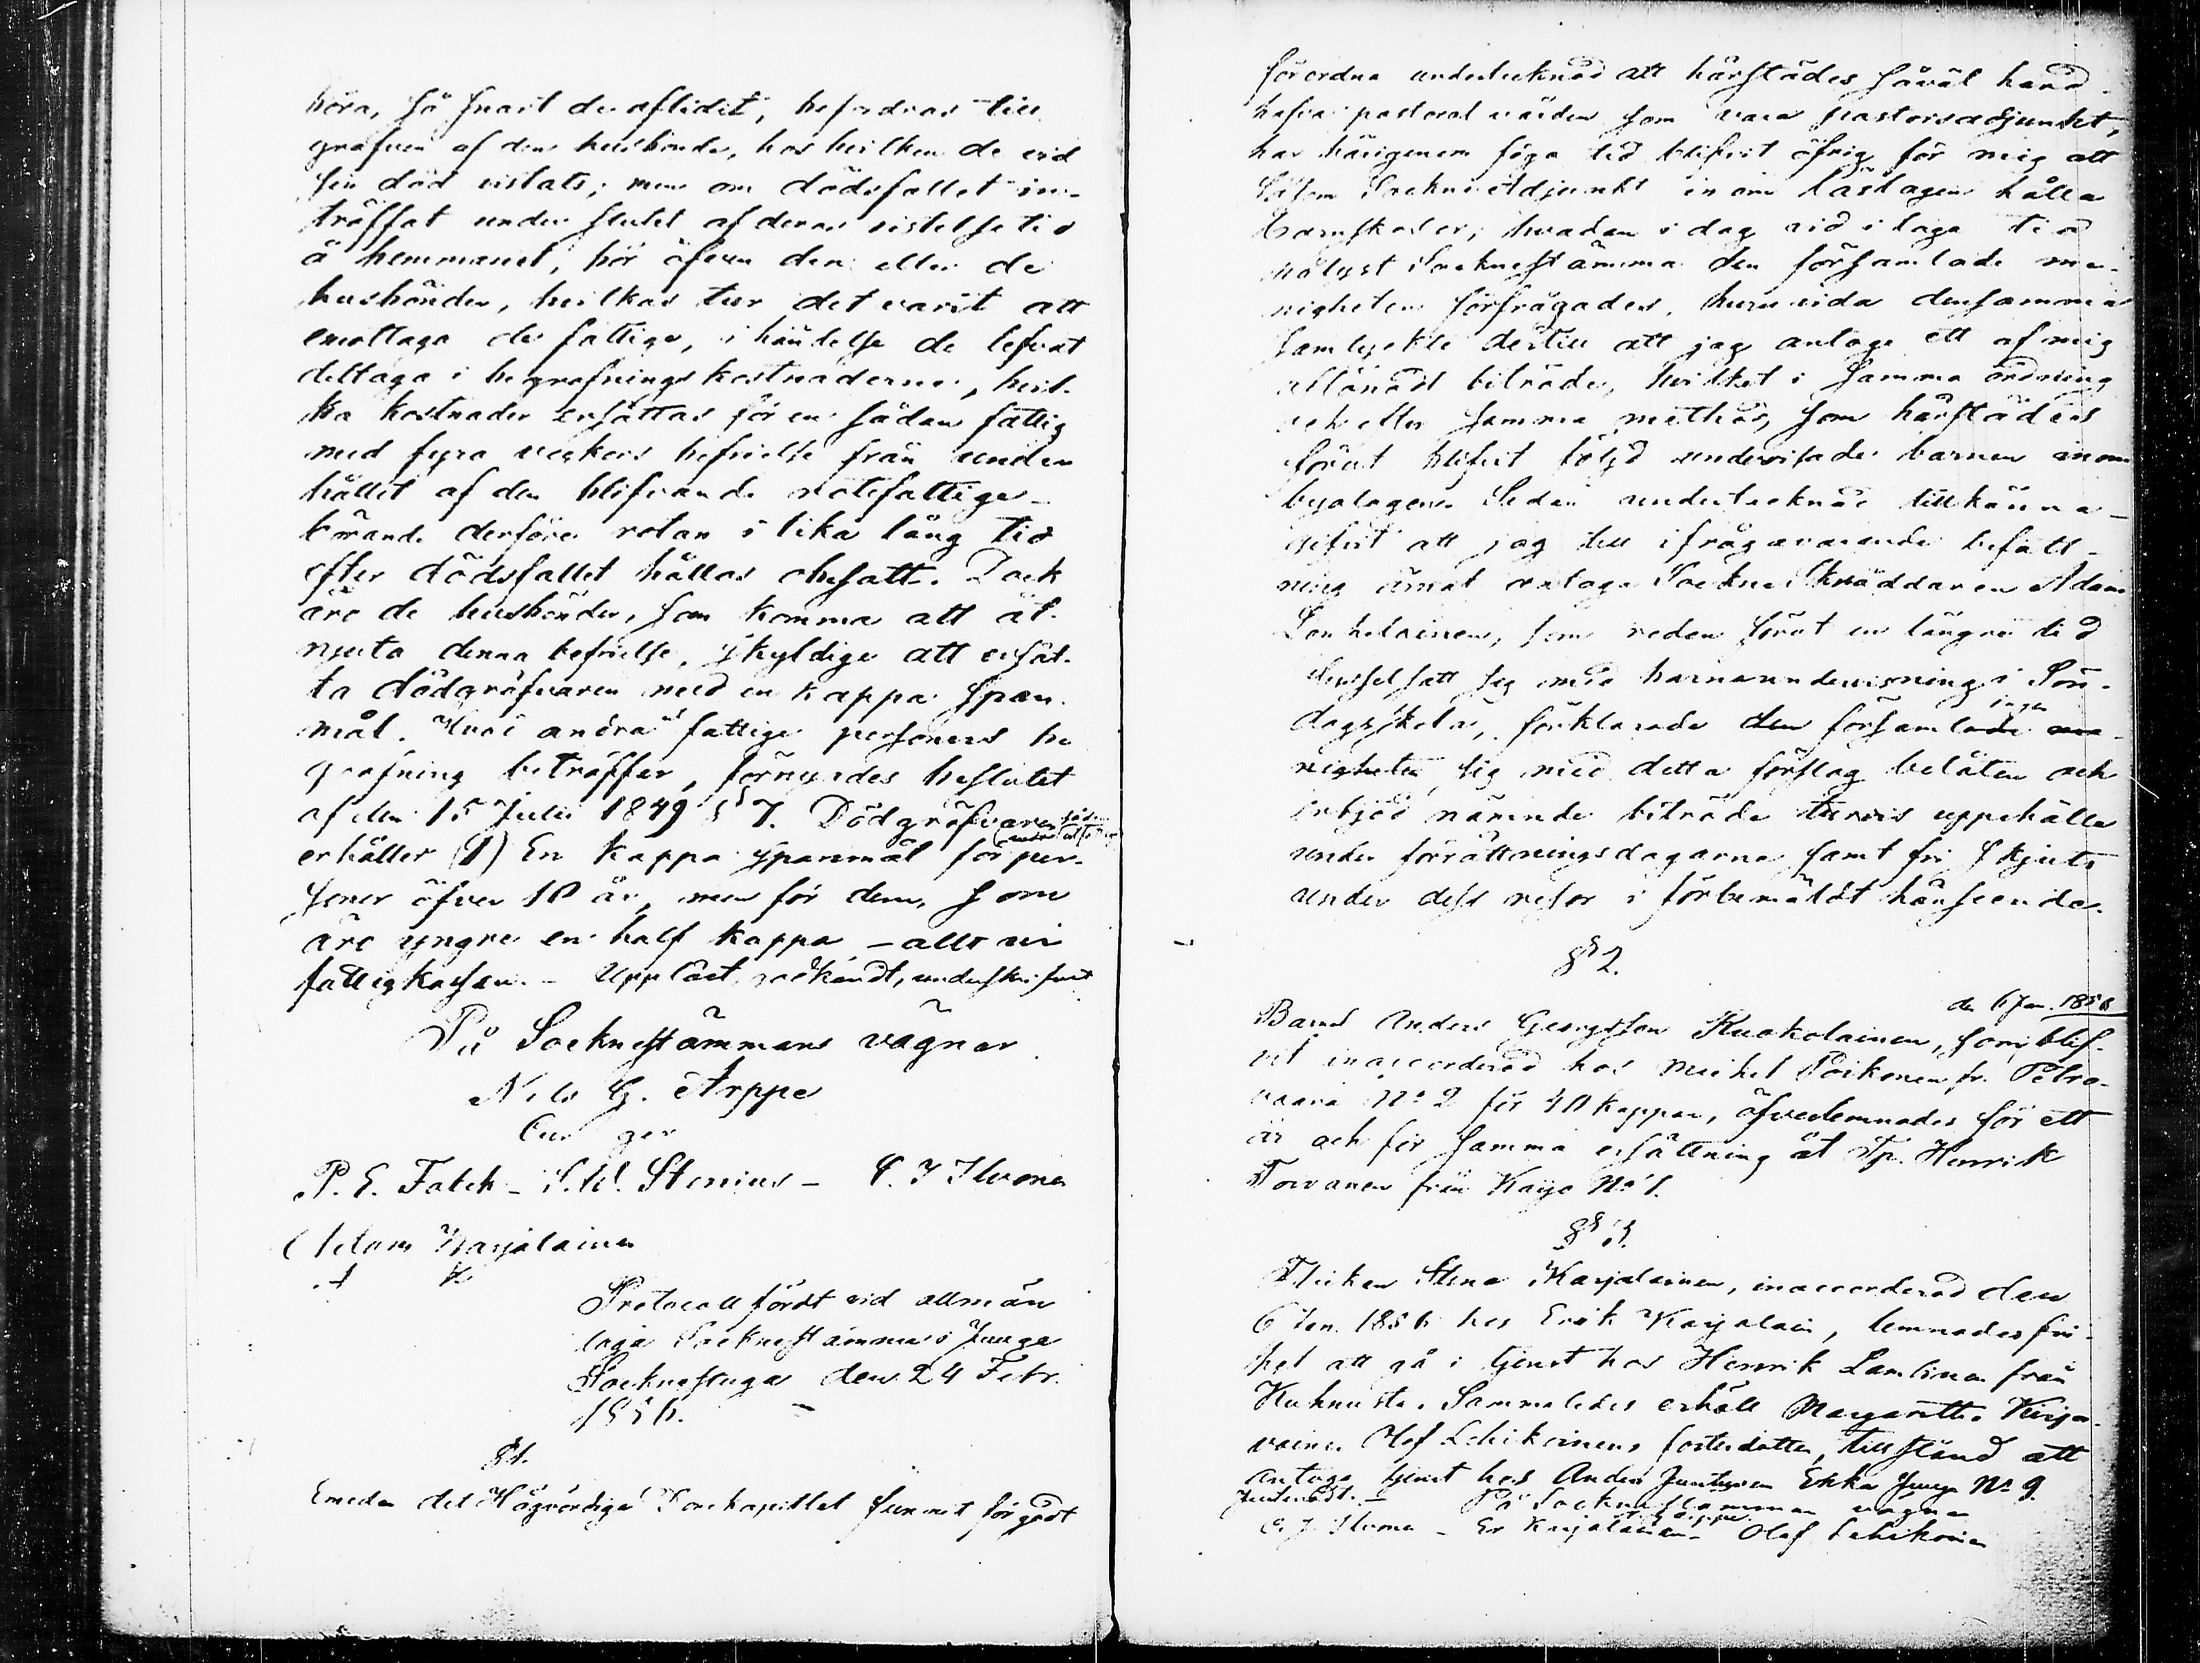 höra, så snart de aflidit, befordras till
grafven af den husbonde, hos hvilken de vid
sin död vistats; men om dödsfallet in-
träffat under slutet af deras vistelse tid
å hemmanet, bör äfven den eller de
husbönder, hvilkas tur det varit att
emottaga de fattige, i händelse de lefvat
deltaga i begrafnings kostnaderne, hvil-
ka kostnader ersättas för en sådan fattig
med fyra veckors befrielse från under
hållet af den blifvande rotefattige –
börande derföre rotan i lika lång tid
efter dödsfallet hållas obesatt. Dock
äro de husbönder, som komma att åt-
njuta denna befrielse, skyldige att ersät-
ta dödgräfvaren med en kappa span-
mål. Hvad andra fattige personers be
grafning beträffar, förnyades beslutet
af den 15 Julii 1849 § 7. Dödgräfvaren
erhåller (1) En kappa spanmål för per-
soner öfver 10 år, men för dem, som
äro yngre en half kappa – allt ur
fattigkassan. – Uppläst, godkändt, underskrifvet
På Sockneståmmans vägnar
Nils G. Arppe
P. E. Fabeh – S. W. Stenius – C. J Ilvonen
Adam Karjalainen
A K
Protocoll fördt vid allmän
laga Socknestämma i Juuga
Socknestuga den 24 Febr.
1856.
§ 1.
Emedan det Högvördiga Domkapitlet funnit för godt
förordna undertecknad att härstädes såväl hand
hafva pastoral vården som vara pastorsadjunkt,
har härigenom föga tid blifvit öfrig för mig att
såsom Sockne Adjunkt inom läslagen hålla
barnskolor; hvadan i dag vid i laga tid
pålyst Socknestämma den församlade me-
nigheten förfrågades, huru vida densamma
samtyckte dertill att jag antoge ett af mig
aflönadt biträde, hvilket i samma ordning
och efter samma method, som härstädes
förut blifvit följd undervisade barnen inom
byalagen. Sedan undertecknad tillkänna-
gifvit att jag till ifrågavarande befatt-
ning ämnat antaga Sockne Skräddaren Adam
som redan förut en längre tid
sysselsatt sig med barnaundervisning i Sön-
dagsskola, förklarade den församlade me-
nigheten sig med detta förslag belåten och
erbjöd nämnde biträde turvis uppehälle
under förrättningsdagarna samt fri skjuts
under dess resor i förbemäldt hänseende.
§ 2.
den 6 Jan. 1856
Barnet Anders Georgsson Kuokolainen, som blif-
vit inaccorderad hos Mickel Poikonen fr. Petro-
vaara No 2 för 40 kappar, öfverlemnades för ett
år och för samma ersättning åt Tp. Henrik
Torvanen från Kayo No 1.
§ 3.
Flickan Stina Karjalainen, inaccorderad den
6 Jan. 1856 hos Erik Karjalain, lemnades fri-
het att gå i tjenst hos Henrik Lamlinen från
Kuhnusta. Sammaledes erhöll Margaretha Kirja-
vainen Olof Lehikoinens fosterdotter, tillstånd att
antaga tjenst hos Anders Juntunen Ekka Juuga No 9.
Justeradt. – På Sockneståmmans vägnar
C. J Ilvonen – Er Karjalainen – Olof Lehikoinen